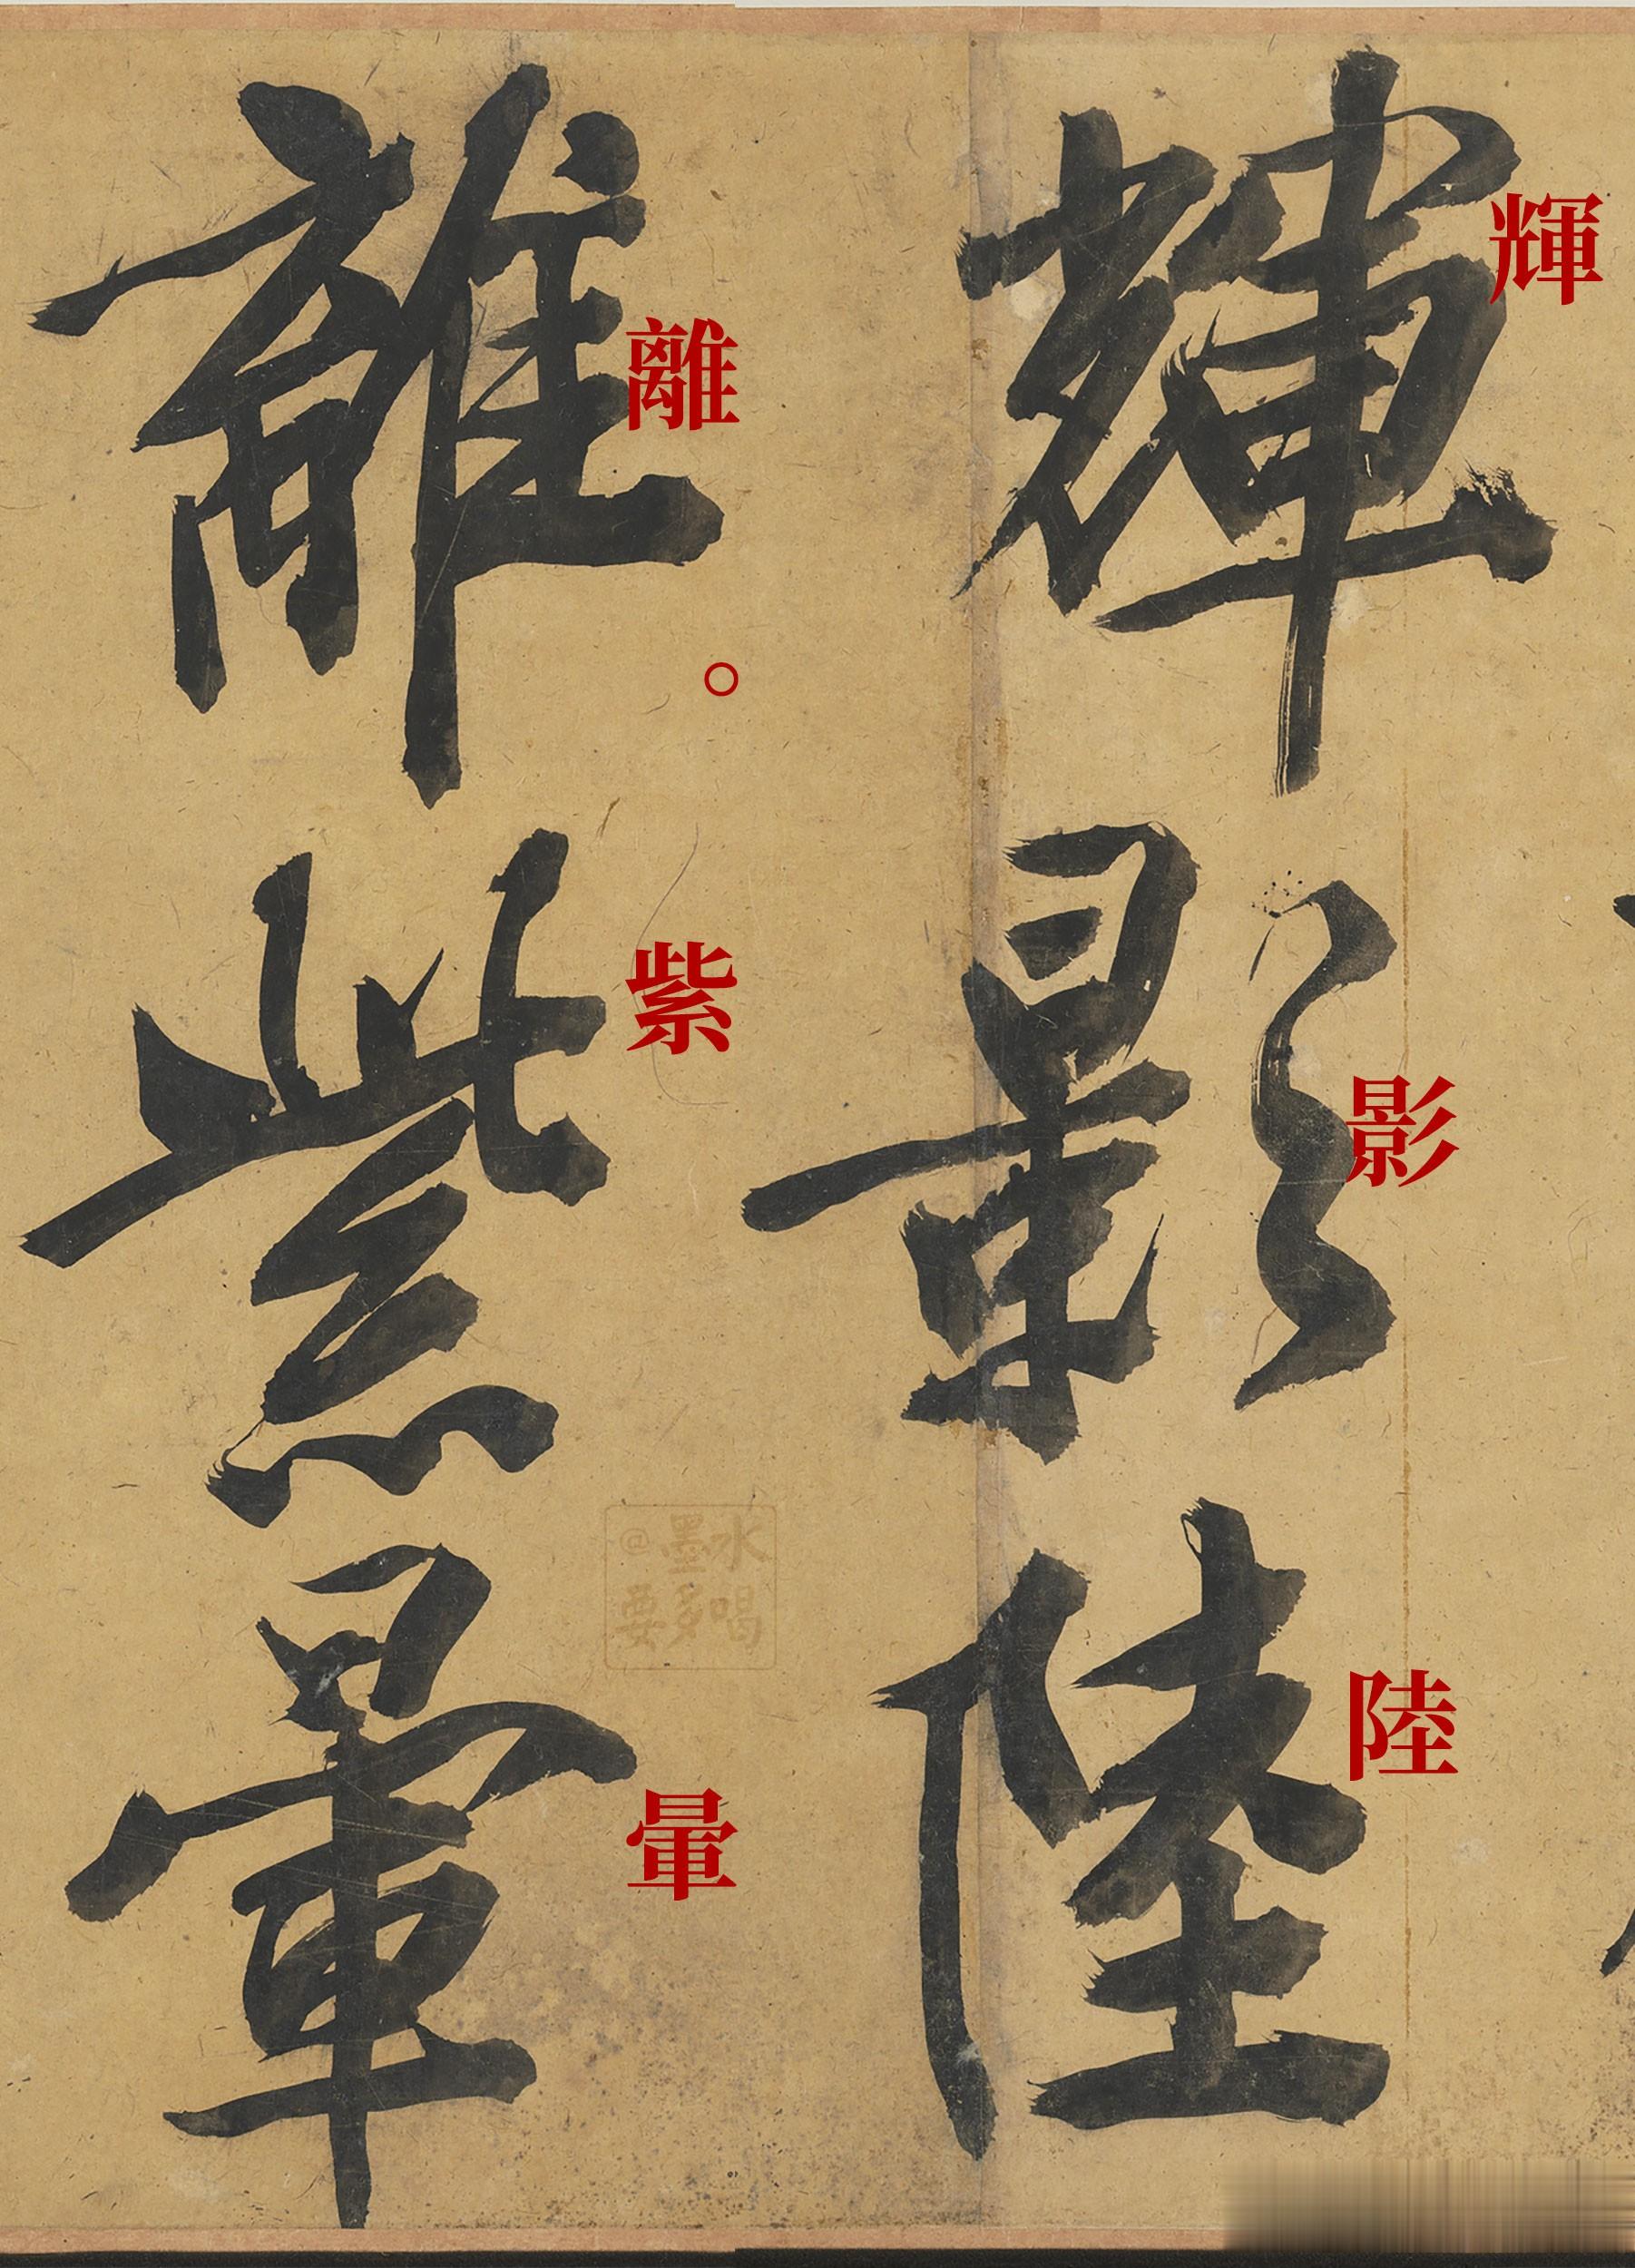 輝影陸
離。紫暈
輝
影
陸
離
。
紫
暈
@墨水
要多喝